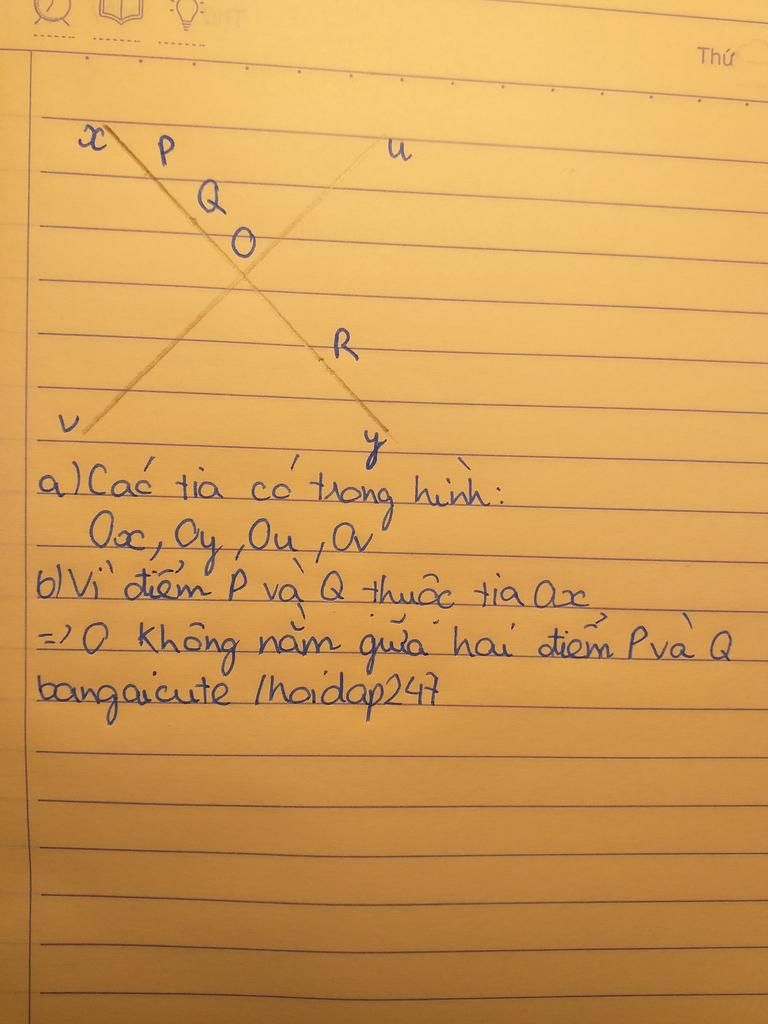 Thứ
x P u
Q
O
R
v y
a) Các tia có trong hình:
Ox, Oy, Ou, Ov
b) Vì điểm P và Q thuộc tia Ox
=> O không nằm giữa hai điểm P và Q
bangaicute /hoidap247